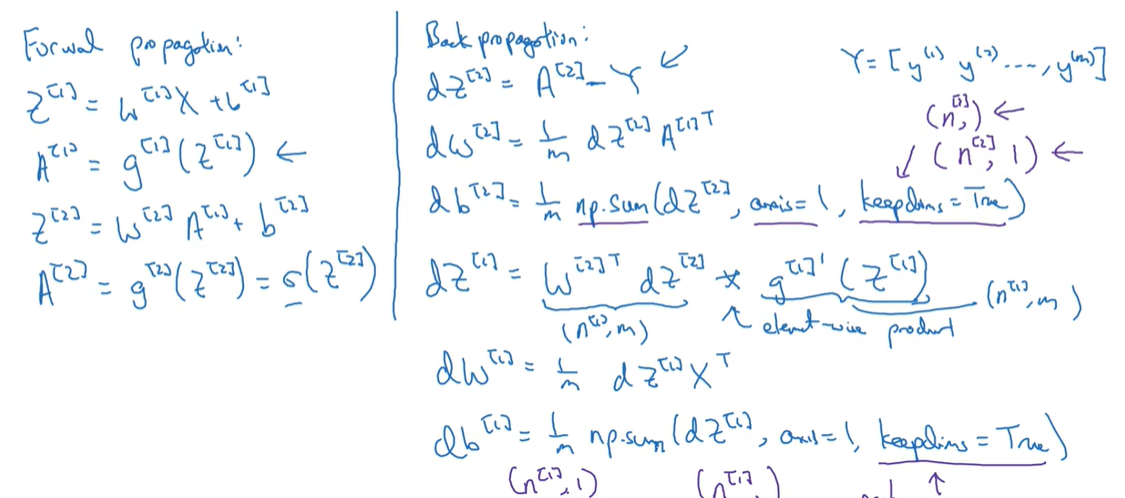 Forwal propagation:
Z^[1] = W^[1]X + b^[1]
A^[1] = g^[1](Z^[1]) ←
Z^[2] = W^[2] A^[1] + b^[2]
A^[2] = g^[2](Z^[2]) = σ(Z^[2])
Back propagation:
dZ^[2] = A^[2] - Y ↙
dW^[2] = 1/m dZ^[2] A^[1]T
db^[2] = 1/m np.sum(dZ^[2], axis=1, keepdims=True)
dZ^[1] = W^[2]T dZ^[2] * g^[1]'(Z^[1])
(n^[1],m) ↖ element-wise product (n^[1],m)
dW^[1] = 1/m dZ^[1] X^T
db^[1] = 1/m np.sum(dZ^[1], axis=1, keepdims=True)
(n^[1],1) (n^[1],) ↑
Y = [y^(1) y^(2) ...., y^(m)]
(n^[2],) ←
↙ (n^[2], 1) ←